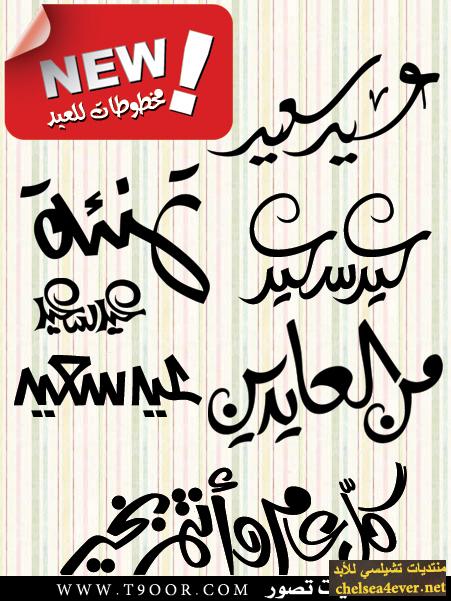 NEW!
مخطوطات للعيد
عيد سعيد
تهنئة
عيد سعيد
عيد سعيد
عيد سعيد
من العايدين
كل عام وأنتم بخير
تصور
WWW.T9OOR.COM
منتديات تشيلسي للأبد
chelsea4ever.net